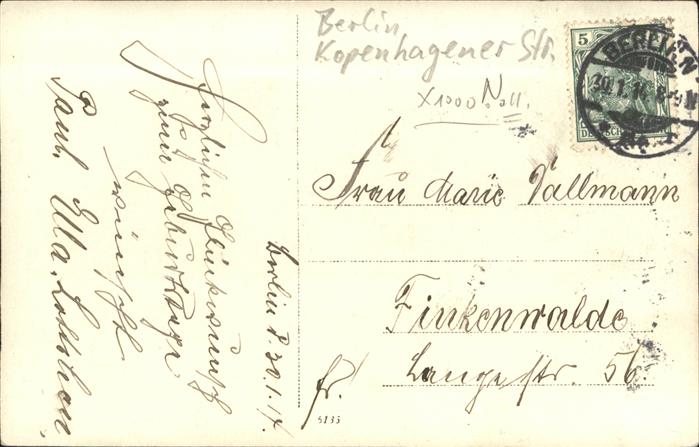 Berlin
Kopenhagener Str.
X1000 Noll.
5
BERLIN
30.1.1
DEUTSCHES
Frau Marie Pallmann
Finkenwalde
Langestr. 56.
fr.
5135
Berlin d. 30.1.17.
Herzlichen Glückwunsch
zum Geburtstage
wünscht
Paul, Ella, Lottchen